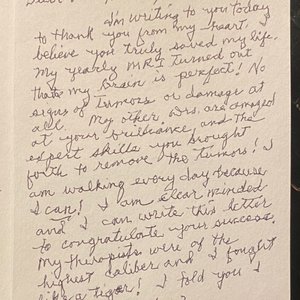 I'm writing to you today
to thank you from my heart. I
believe you truly saved my life.
My yearly MRI turned out
that my brain is perfect! No
signs of tumors or damage at
all. My other Drs. are amazed
at your brilliance and the
expert skills you brought
forth to remove the tumors! I
am walking every day because
I can! I am clear minded
and I can write this letter
to congratulate your success.
My therapists were of the
highest caliber and I fought
like a tiger! I told you I